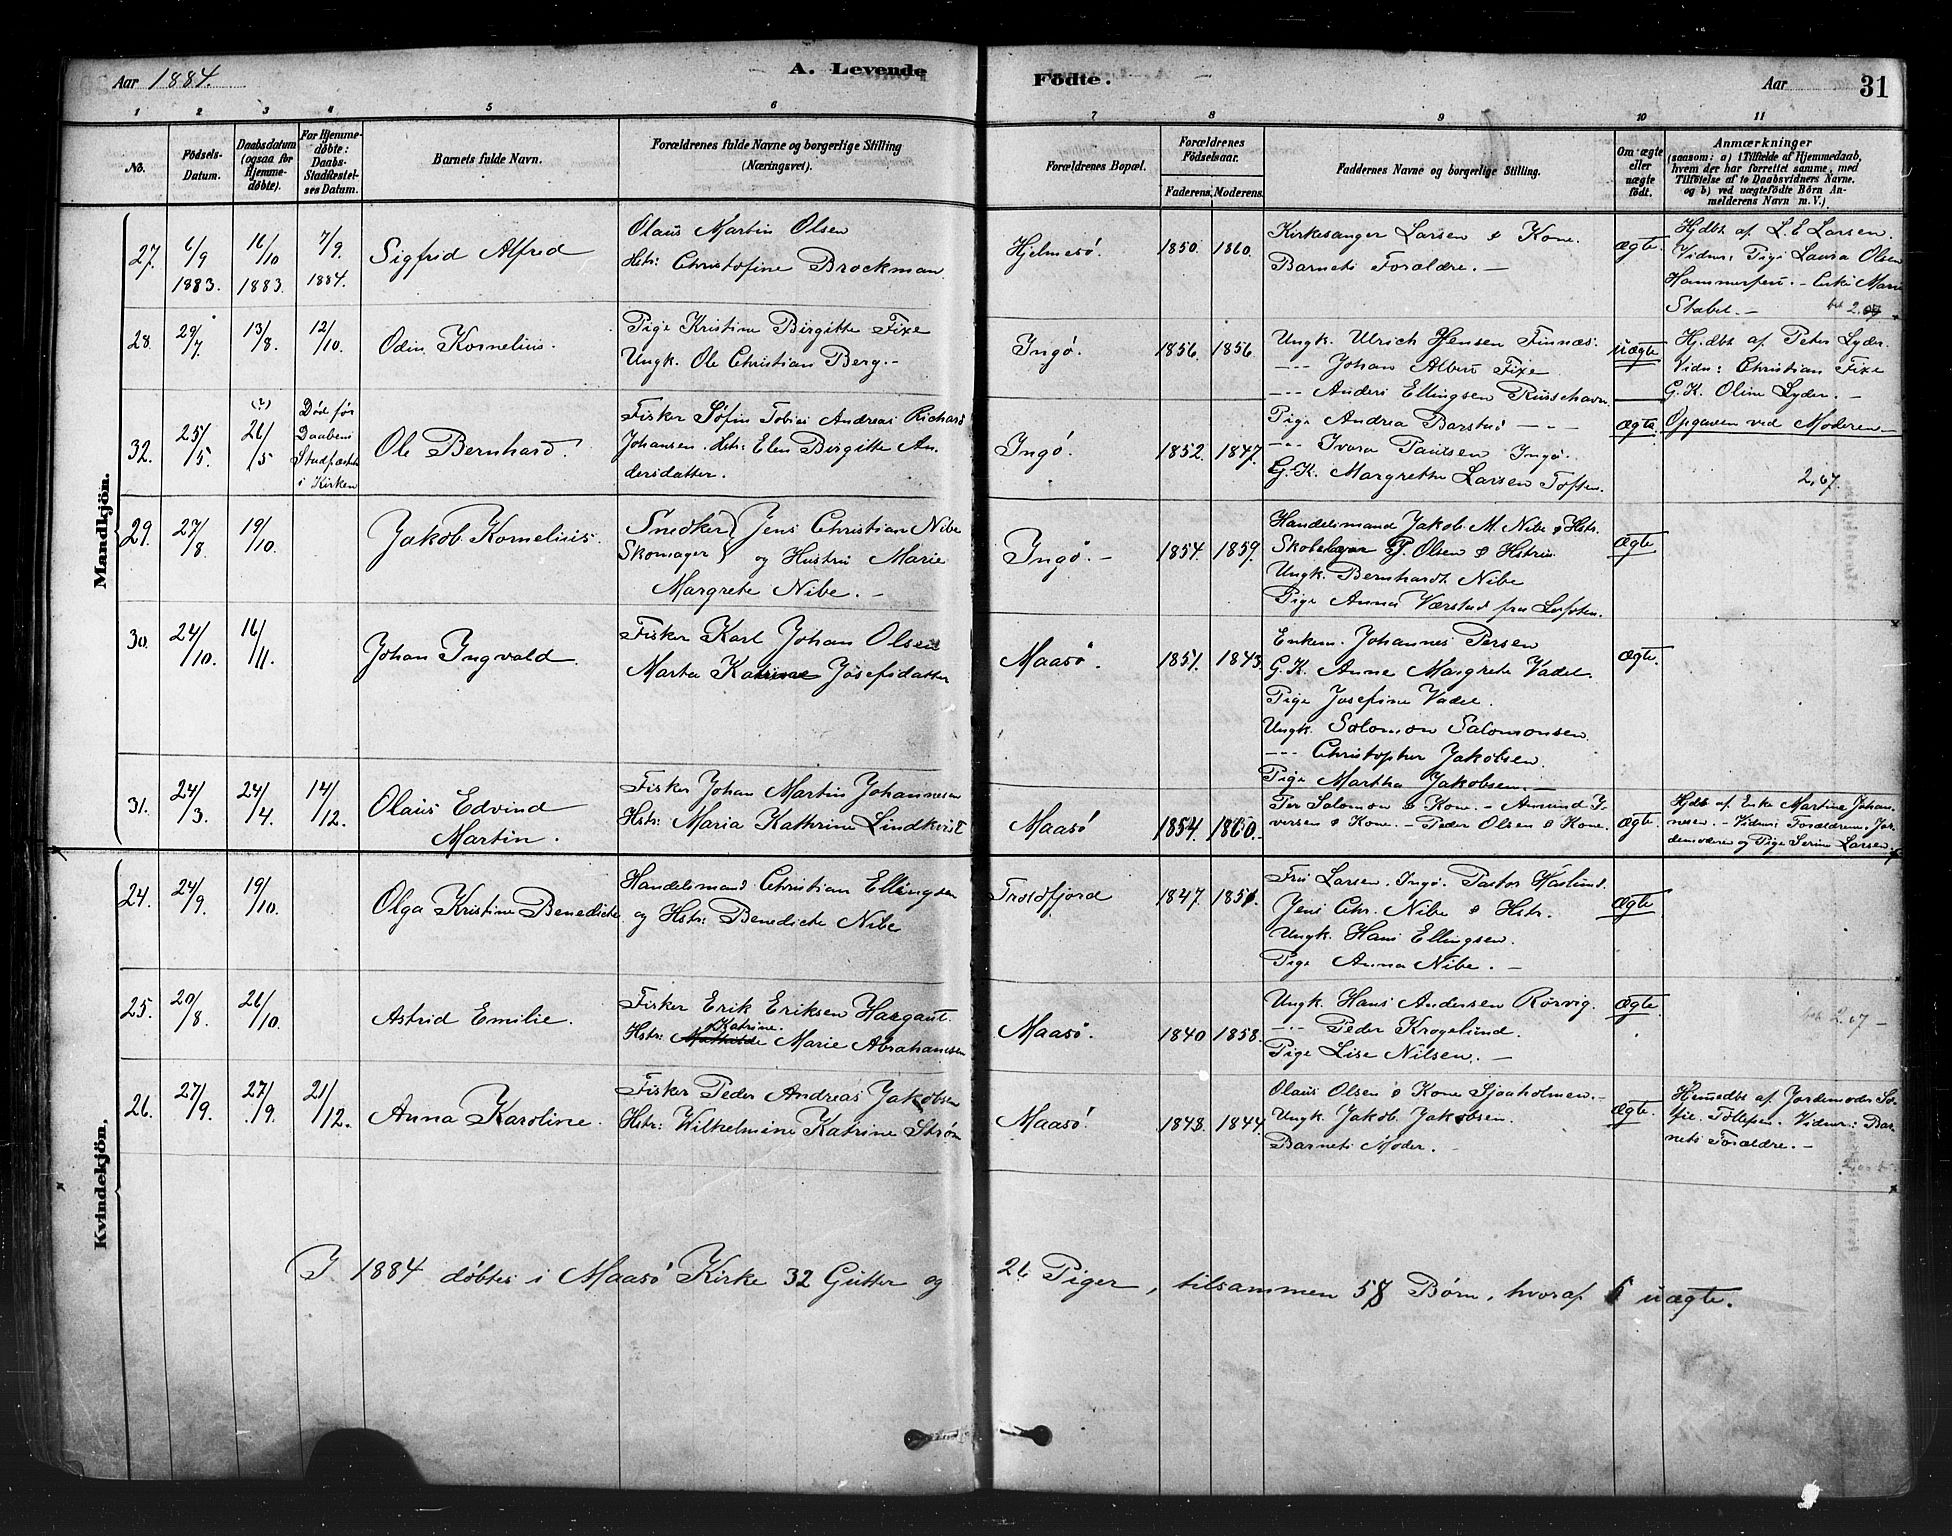 Aar 1884.
A. Levende
Födte.
Aar
31
1 2 3 4 5 6 7 8 9 10 11
No.
Födsels-
Datum.
Daabsdatum
(ogsaa for
Hjemme-
døbte).
For Hjemme-
døbte:
Daabs-
Stadfæstel-
ses Datum.
Barnets fulde Navn.
Forældrenes fulde Navne og borgerlige Stilling
(Næringsvei).
Forældrenes Bopæl.
Forældrenes
Födselsaar.
Faderens. Moderens.
Faddernes Navne og borgerlige Stilling.
Om ægte
eller
uægte
født.
Anmærkninger
(saasom: a) i Tilfælde af Hjemmedaab,
hvem der har forrettet samme, med
Tilföielse af to Daabsvidners Navne,
og b) ved uægtefödte Börn An-
melderens Navn m. V.).
Mandkjön.
27. 6/9 1883. 16/10 1883. 7/9. 1884.
Sigfrid Alfred
Olaus Martin Olsen
Hstr: Christofine Brockman
Hjelmesö. 1850. 1860.
Kirkesanger Larsen & Kone.
Barnets Forældre. —
ægte.
Hjdbt af L. E. Larsen.
Vidner: Pige Laura Olsen
Hammerfest. — Enke Marie
Stabel. —
28. 29/7 13/8. 12/10.
Odin Kornelius.
Pige Kristine Birgitte Fixe
Ungk. Ole Christian Berg. —
Ingø. 1856. 1856.
Ungk. Ulrich Jensen Finnæs.
--- Johan Albert Fixe
--- Anders Ellingsen Russehavn.
uægte
Hjdbt af Peter Lyder.
Vidn: Christian Fixe
G.K. Oline Lyder. —
32. 25/5. (?) 26/5
Død før
Daabens
Stadfæstelse
i Kirken
Ole Bernhard.
Fisker Søfin Tobias Andreas Richard
Johansen. Hstr: Elen Birgitte An-
dersdatter.
Ingø. 1852. 1847.
Pige Andrea Barstad — „ —
--- Ivara Paulsen Ingø.
G.K. Margrethe Larsen Toften.
ægte.
Opgaven ved Moderen —
2,07.
29. 27/8 19/10.
Jakob Kornelius.
Snedker Jens Christian Nibe
Skomager og Hustru Marie
Margrete Nibe. —
Ingø. — 1854. 1859.
Handelsmand Jakob M. Nibe & Hstr.
P. Olsen & Hstrin
Ungk. Bernhardt Nibe
Pige Anna Værstad fra Lofoten.
Ægte
30. 24/10. 16/11.
Johan Ingvald.
Fisker Karl Johan Olsen
Marta Katrine Josefsdatter
Maasö. 1851. 1843.
Enkem. Johannes Persen
G.K. Anne Margrete Vadel.
Pige Josefine Vadel.
Ungk. Solomon Salomonsen
--- Christopher Jakobsen.
Pige Martha Jakobsen. —
ægte.
31. 24/3. 24/4. 14/12.
Olaus Edvind
Martin.
Fisker Johan Martin Johannesen
Hstr: Maria Kathrine Lindkvist
Maasö 1854. 1860.
Per Salomon & Kone. — Amund I-
versen & Kone. — Peder Olsen & Kone.
Ægte.
Hjdbt af Enke Martine Johan-
nesen. — Vidner: Forældrene. Jor-
demoderen og Pige Serine Larsen.
Kvindekjön.
24. 24/9. 19/10.
Olga Kristine Benedicte
Handelsmand Christian Ellingsen
og Hstr: Benedicte Nibe
Troldfjord 1847. 1851.
Fru Larsen. Ingø. Pastor Haslund.
Jens Chr. Nibe & Hstr.
Ungk. Hans Ellingsen.
Pige Anna Nibe. —
Ægte
25. 20/8. 26/10.
Astrid Emilie.
Fisker Erik Eriksen Hargaut.
Katrine.
Hstr: Mathilde Marie Abrahamsen
Maasö. 1840 1858.
Ungk. Hans Andersen Rörvig.
--- Peder Krogelund.
Pige Lise Nilsen. —
Ægte
bet 2.07 —
26. 27/9. 27/9. 21/12.
Anna Karoline.
Fisker Peder Andreas Jakobsen
Hstr: Wilhelmine Katrine Strøm
Maasö. 1848. 1844.
Olaus Olsen & Kone Sjaaholmen. —
Ungk. Jakob Jakobsen.
Barnets Moder. —
Ægte.
Hjemmedbt af Jordemoder So-
fie Tollefsen. Vidner: Bar-
nets Forældre. —
I 1884 døbtes i Maasö Kirke 32 Gutter og 26 Piger, tilsammen 58 Børn, hvoraf 6 uægte.